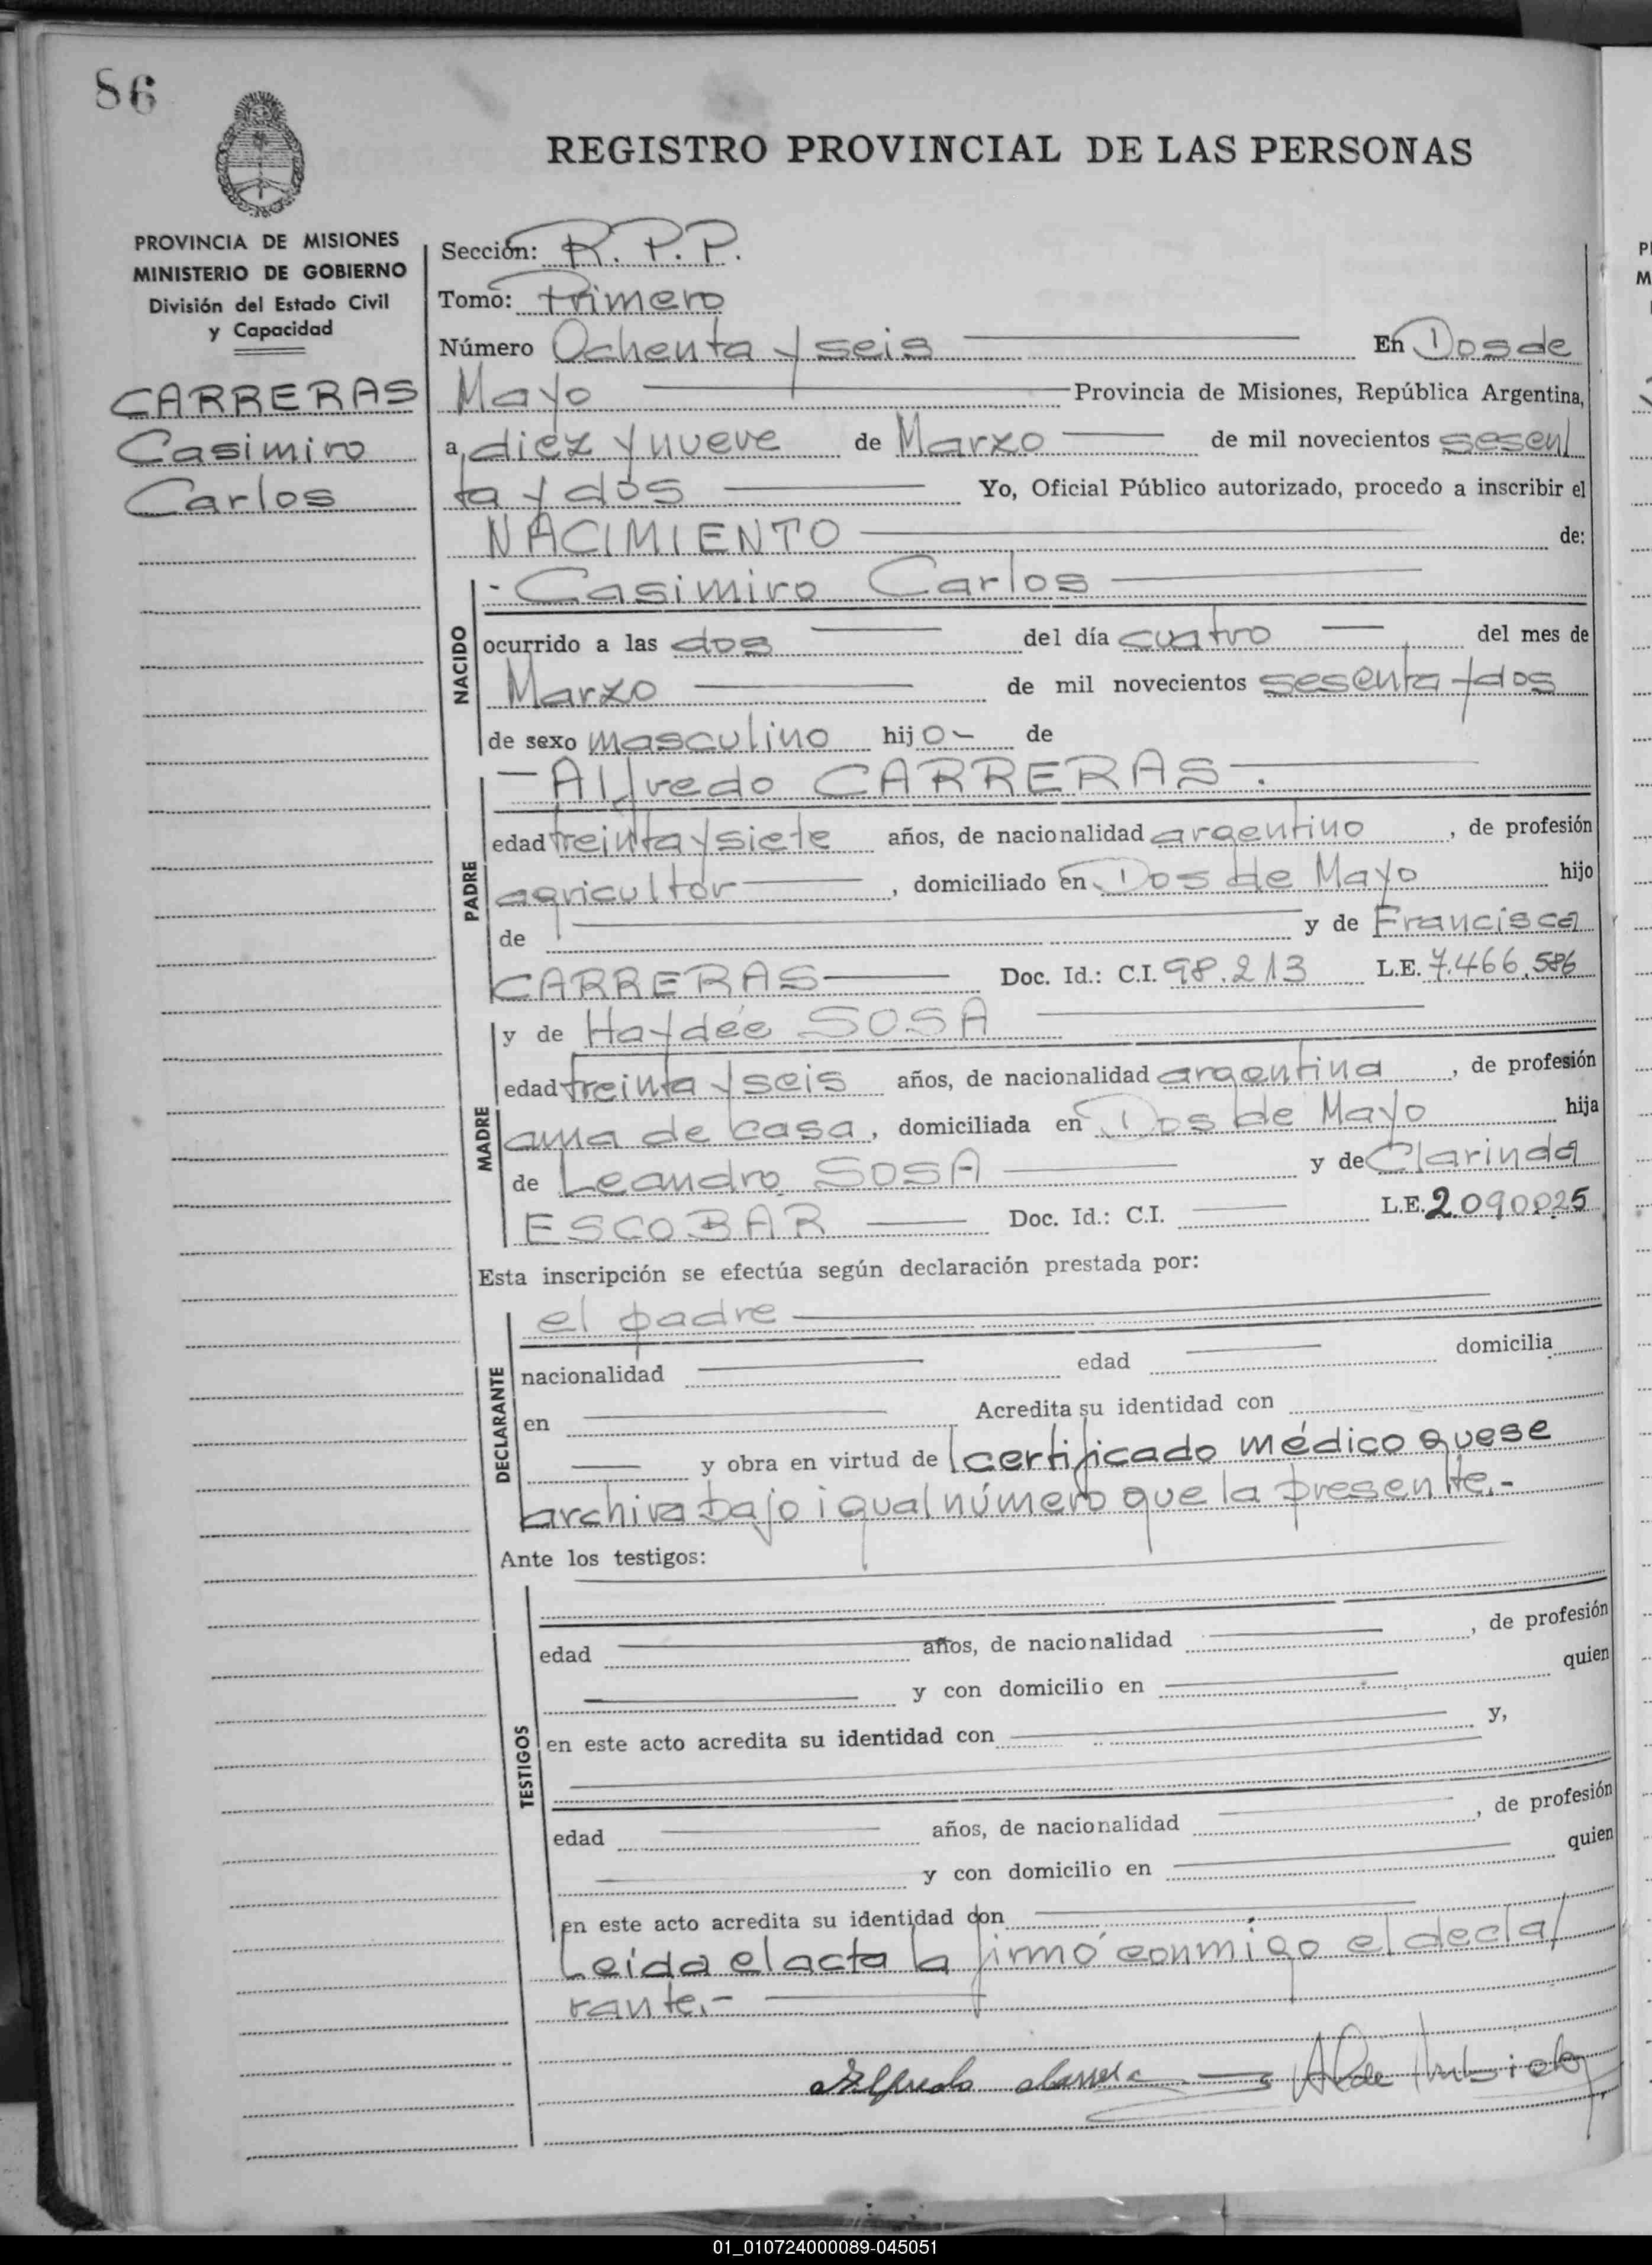 86
REGISTRO PROVINCIAL DE LAS PERSONAS
PROVINCIA DE MISIONES
MINISTERIO DE GOBIERNO
División del Estado Civil
y Capacidad
CARRERAS
Casimiro
Carlos
Sección: R. P. P.
Tomo: Primero
Número Ochenta y seis En Dos de
Mayo Provincia de Misiones, República Argentina,
a diez y nueve de Marzo de mil novecientos sesen/
ta y dos Yo, Oficial Público autorizado, procedo a inscribir el
NACIMIENTO de:
NACIDO
- Casimiro Carlos
ocurrido a las dos del día cuatro del mes de
Marzo de mil novecientos sesenta y dos
de sexo masculino hijo- de
PADRE
- Alfredo CARRERAS - .
edad treinta y siete años, de nacionalidad argentino, de profesión
agricultor, domiciliado en Dos de Mayo hijo
de y de Francisca
CARRERAS Doc. Id.: C.I. 98.213 L.E. 7.466.586
MADRE
y de Haydée SOSA
edad treinta y seis años, de nacionalidad argentina, de profesión
ama de casa, domiciliada en Dos de Mayo hija
de Leandro SOSA y de Clarinda
ESCOBAR Doc. Id.: C.I. L.E. 2.090.025
Esta inscripción se efectúa según declaración prestada por:
DECLARANTE
el padre
nacionalidad edad domicilia
en Acredita su identidad con
y obra en virtud de certificado médico que se
archiva bajo igual número que la presente.-
Ante los testigos:
TESTIGOS
edad años, de nacionalidad , de profesión
y con domicilio en quien
en este acto acredita su identidad con y,
edad años, de nacionalidad , de profesión
y con domicilio en quien
en este acto acredita su identidad con
Leida el acta la firmó conmigo el decla/
rante.-
Alfredo
01_010724000089-045051